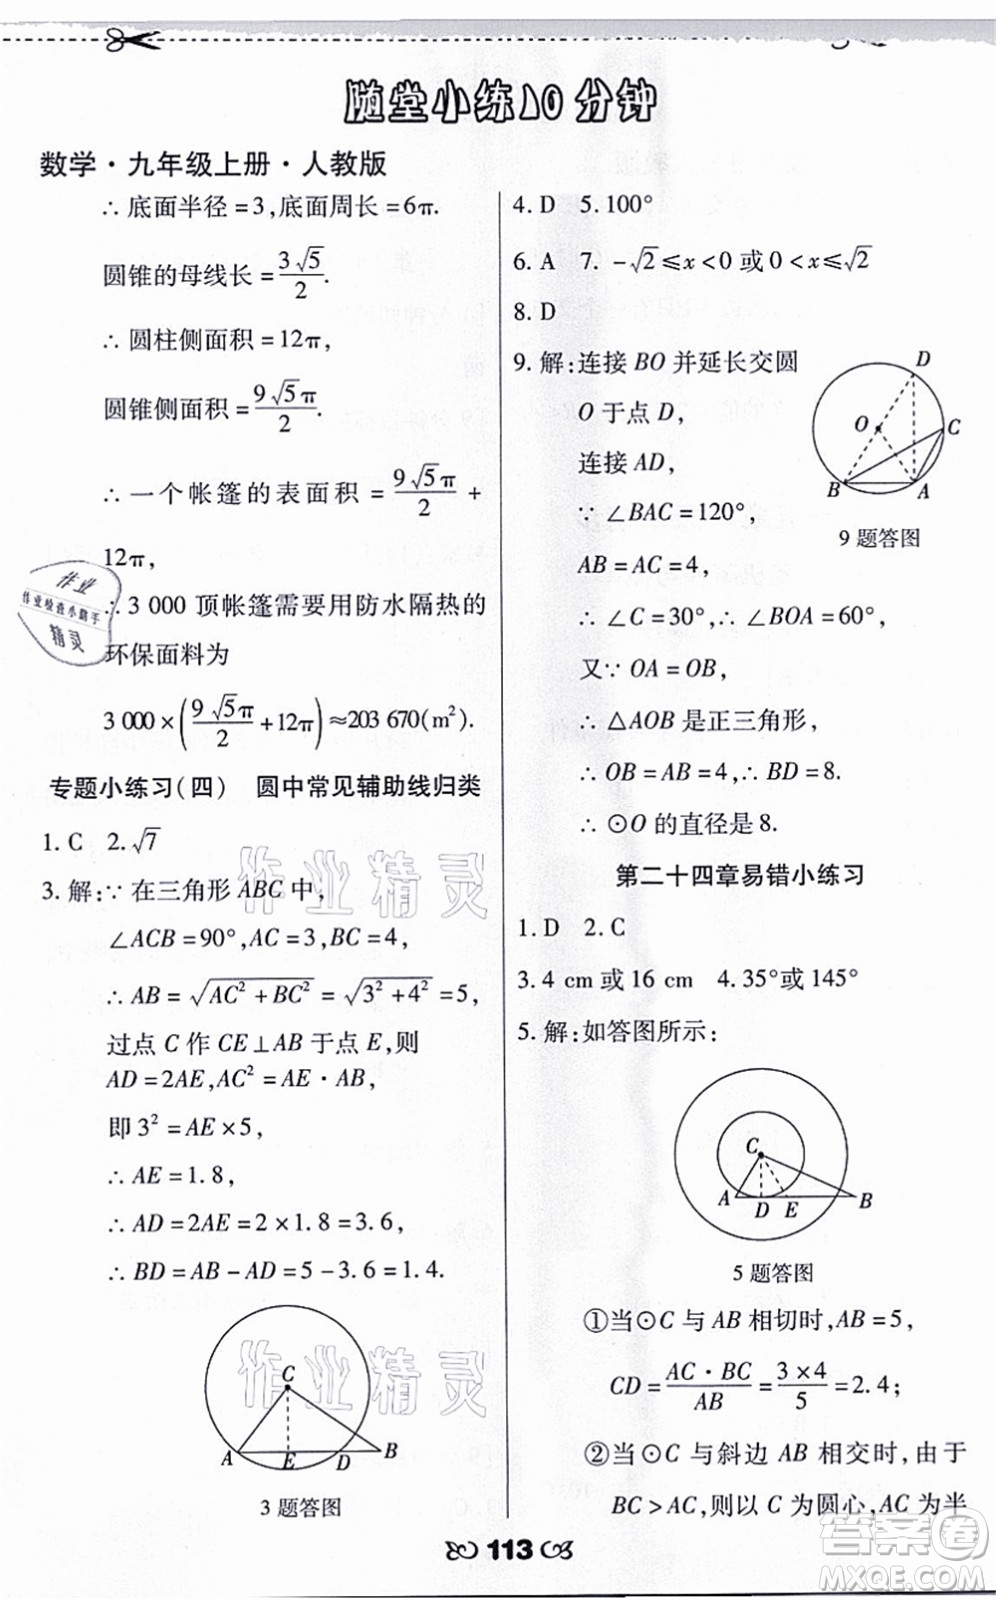 随堂小练10分钟
数学·九年级上册·人教版
∴底面半径=3,底面周长=6π.
圆锥的母线长=3√5/2.
∴圆柱侧面积=12π,
圆锥侧面积=9√5π/2.
∴一个帐篷的表面积=9√5π/2+
12π,
∴3 000顶帐篷需要用防水隔热的
环保面料为
3 000×(9√5π/2+12π)≈203 670(m²).
专题小练习(四) 圆中常见辅助线归类
1. C 2. √7
3. 解:∵在三角形ABC中,
∠ACB=90°,AC=3,BC=4,
∴AB=√(AC²+BC²)=√(3²+4²)=5,
过点C作CE⊥AB于点E,则
AD=2AE,AC²=AE·AB,
即3²=AE×5,
∴AE=1.8,
∴AD=2AE=2×1.8=3.6,
∴BD=AB-AD=5-3.6=1.4.
C
A E D B
3题答图
4. D 5. 100°
6. A 7. -√2≤x<0或0<x≤√2
8. D
9. 解:连接BO并延长交圆
O于点D,
连接AD,
∵∠BAC=120°,
AB=AC=4,
∴∠C=30°,∴∠BOA=60°,
又∵OA=OB,
∴△AOB是正三角形,
∴OB=AB=4,∴BD=8.
∴⊙O的直径是8.
D
O C
B A
9题答图
第二十四章易错小练习
1. D 2. C
3. 4 cm或16 cm 4. 35°或145°
5. 解:如答图所示:
C
A D E B
5题答图
①当⊙C与AB相切时,AB=5,
CD=AC·BC/AB=3×4/5=2.4;
②当⊙C与斜边AB相交时,由于
BC>AC,则以C为圆心,AC为半
113
作业
作业检查小助手
精灵
作业精灵
作业精灵
答案圈
MXQE.COM